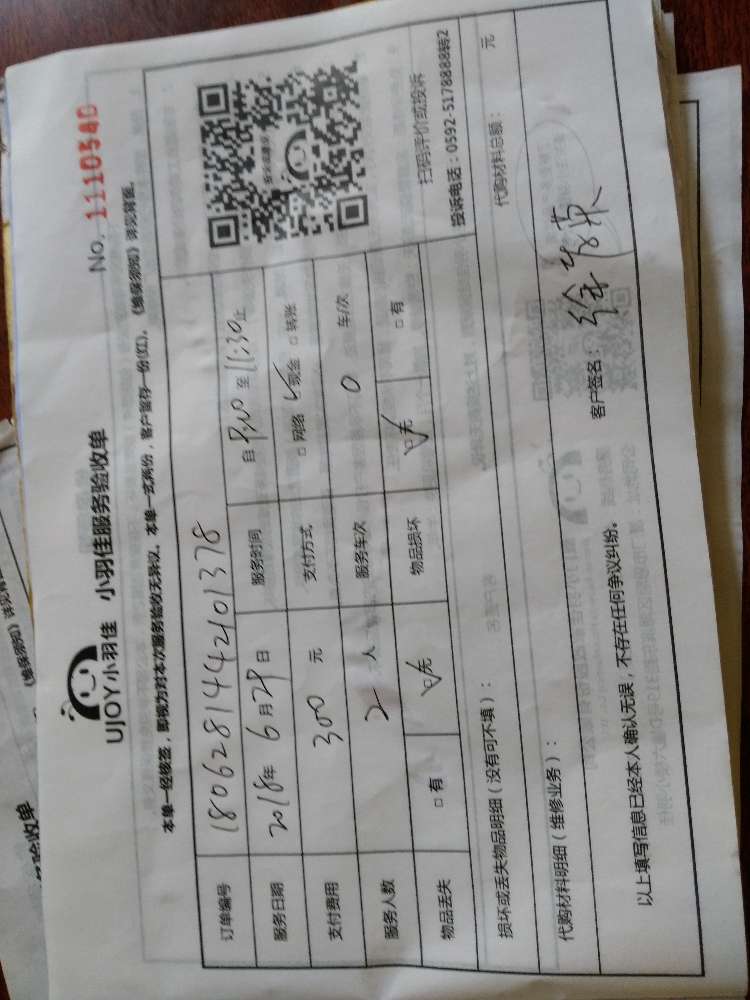 UJOY小羽佳 小羽佳服务验收单
No. 1110540
本单一经接签,即视为对本次服务验收无异议。本单一式两份,客户留存一份(红)。《维保须知》详见背面。
订单编号 1806281442101378
服务日期 2018年 6月29日 服务时间 自 9:00 至 11:30止
支付费用 300 元 支付方式 □ 网络 ✓现金 □ 转账
服务人数 2 人 服务车次 0 车/次
物品丢失 □ 有 ☑无 物品损坏 ☑无 □ 有
扫码评价或投诉
投诉电话:0592-5178888转2
损坏或丢失物品明细(没有可不填):
代购材料明细(维修业务): 代购材料总额: 元
以上填写信息已经本人确认无误,不存在任何争议纠纷。 客户签名: